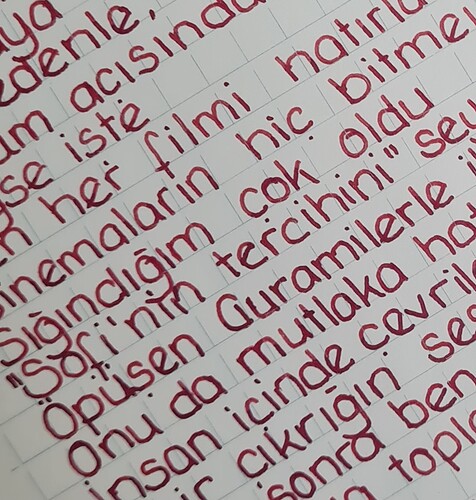 aya
edenle,
um acısında
yse işte
her filmi hatırla
sinemaların hiç bitme
Sığındığım çok oldu
"Sofi'nin tercihini" sey
Öpüşen Guramilerle
Onu da mutlaka ha
insan içinde çevril
ir çıkrığın se
sonra ben
n topla